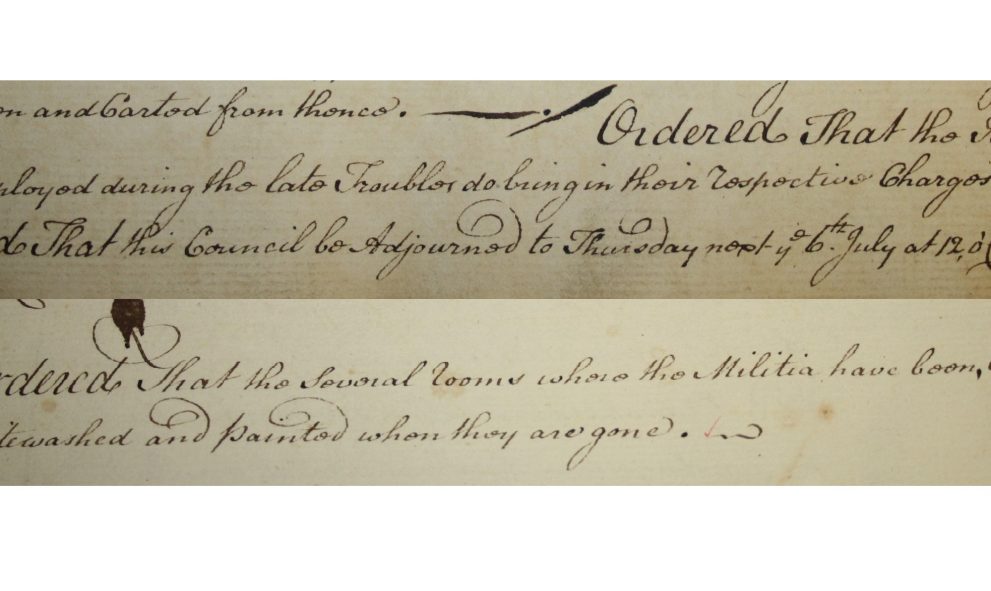 and Carted from thence. Ordered That the
ployed during the late Troubles do bring in their respective Charges
That this Council be Adjourned to Thursday next yᵉ 6ᵗʰ July at 12,
rdered That the Several rooms where the Militia have been,
tewashed and painted when they are gone.